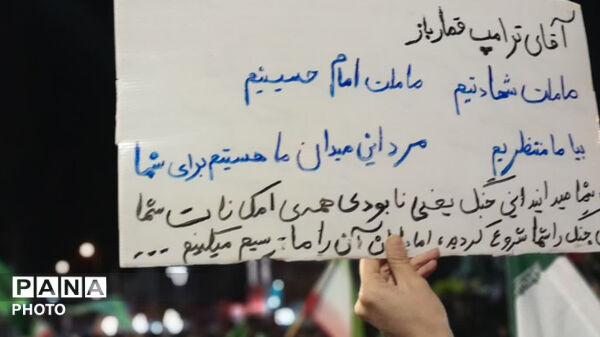 آقای ترامپ قمارباز
ما ملت شهادتیم ما ملت امام حسینیم
بیا ما منتظریم مرد این میدان ما هستیم برای شما
شما میدانید این جنگ یعنی نابودی همه‌ی امکانات شما
جنگ را شما شروع کردید، اما پایان آن را ما ترسیم میکنیم ...
PANA
PHOTO